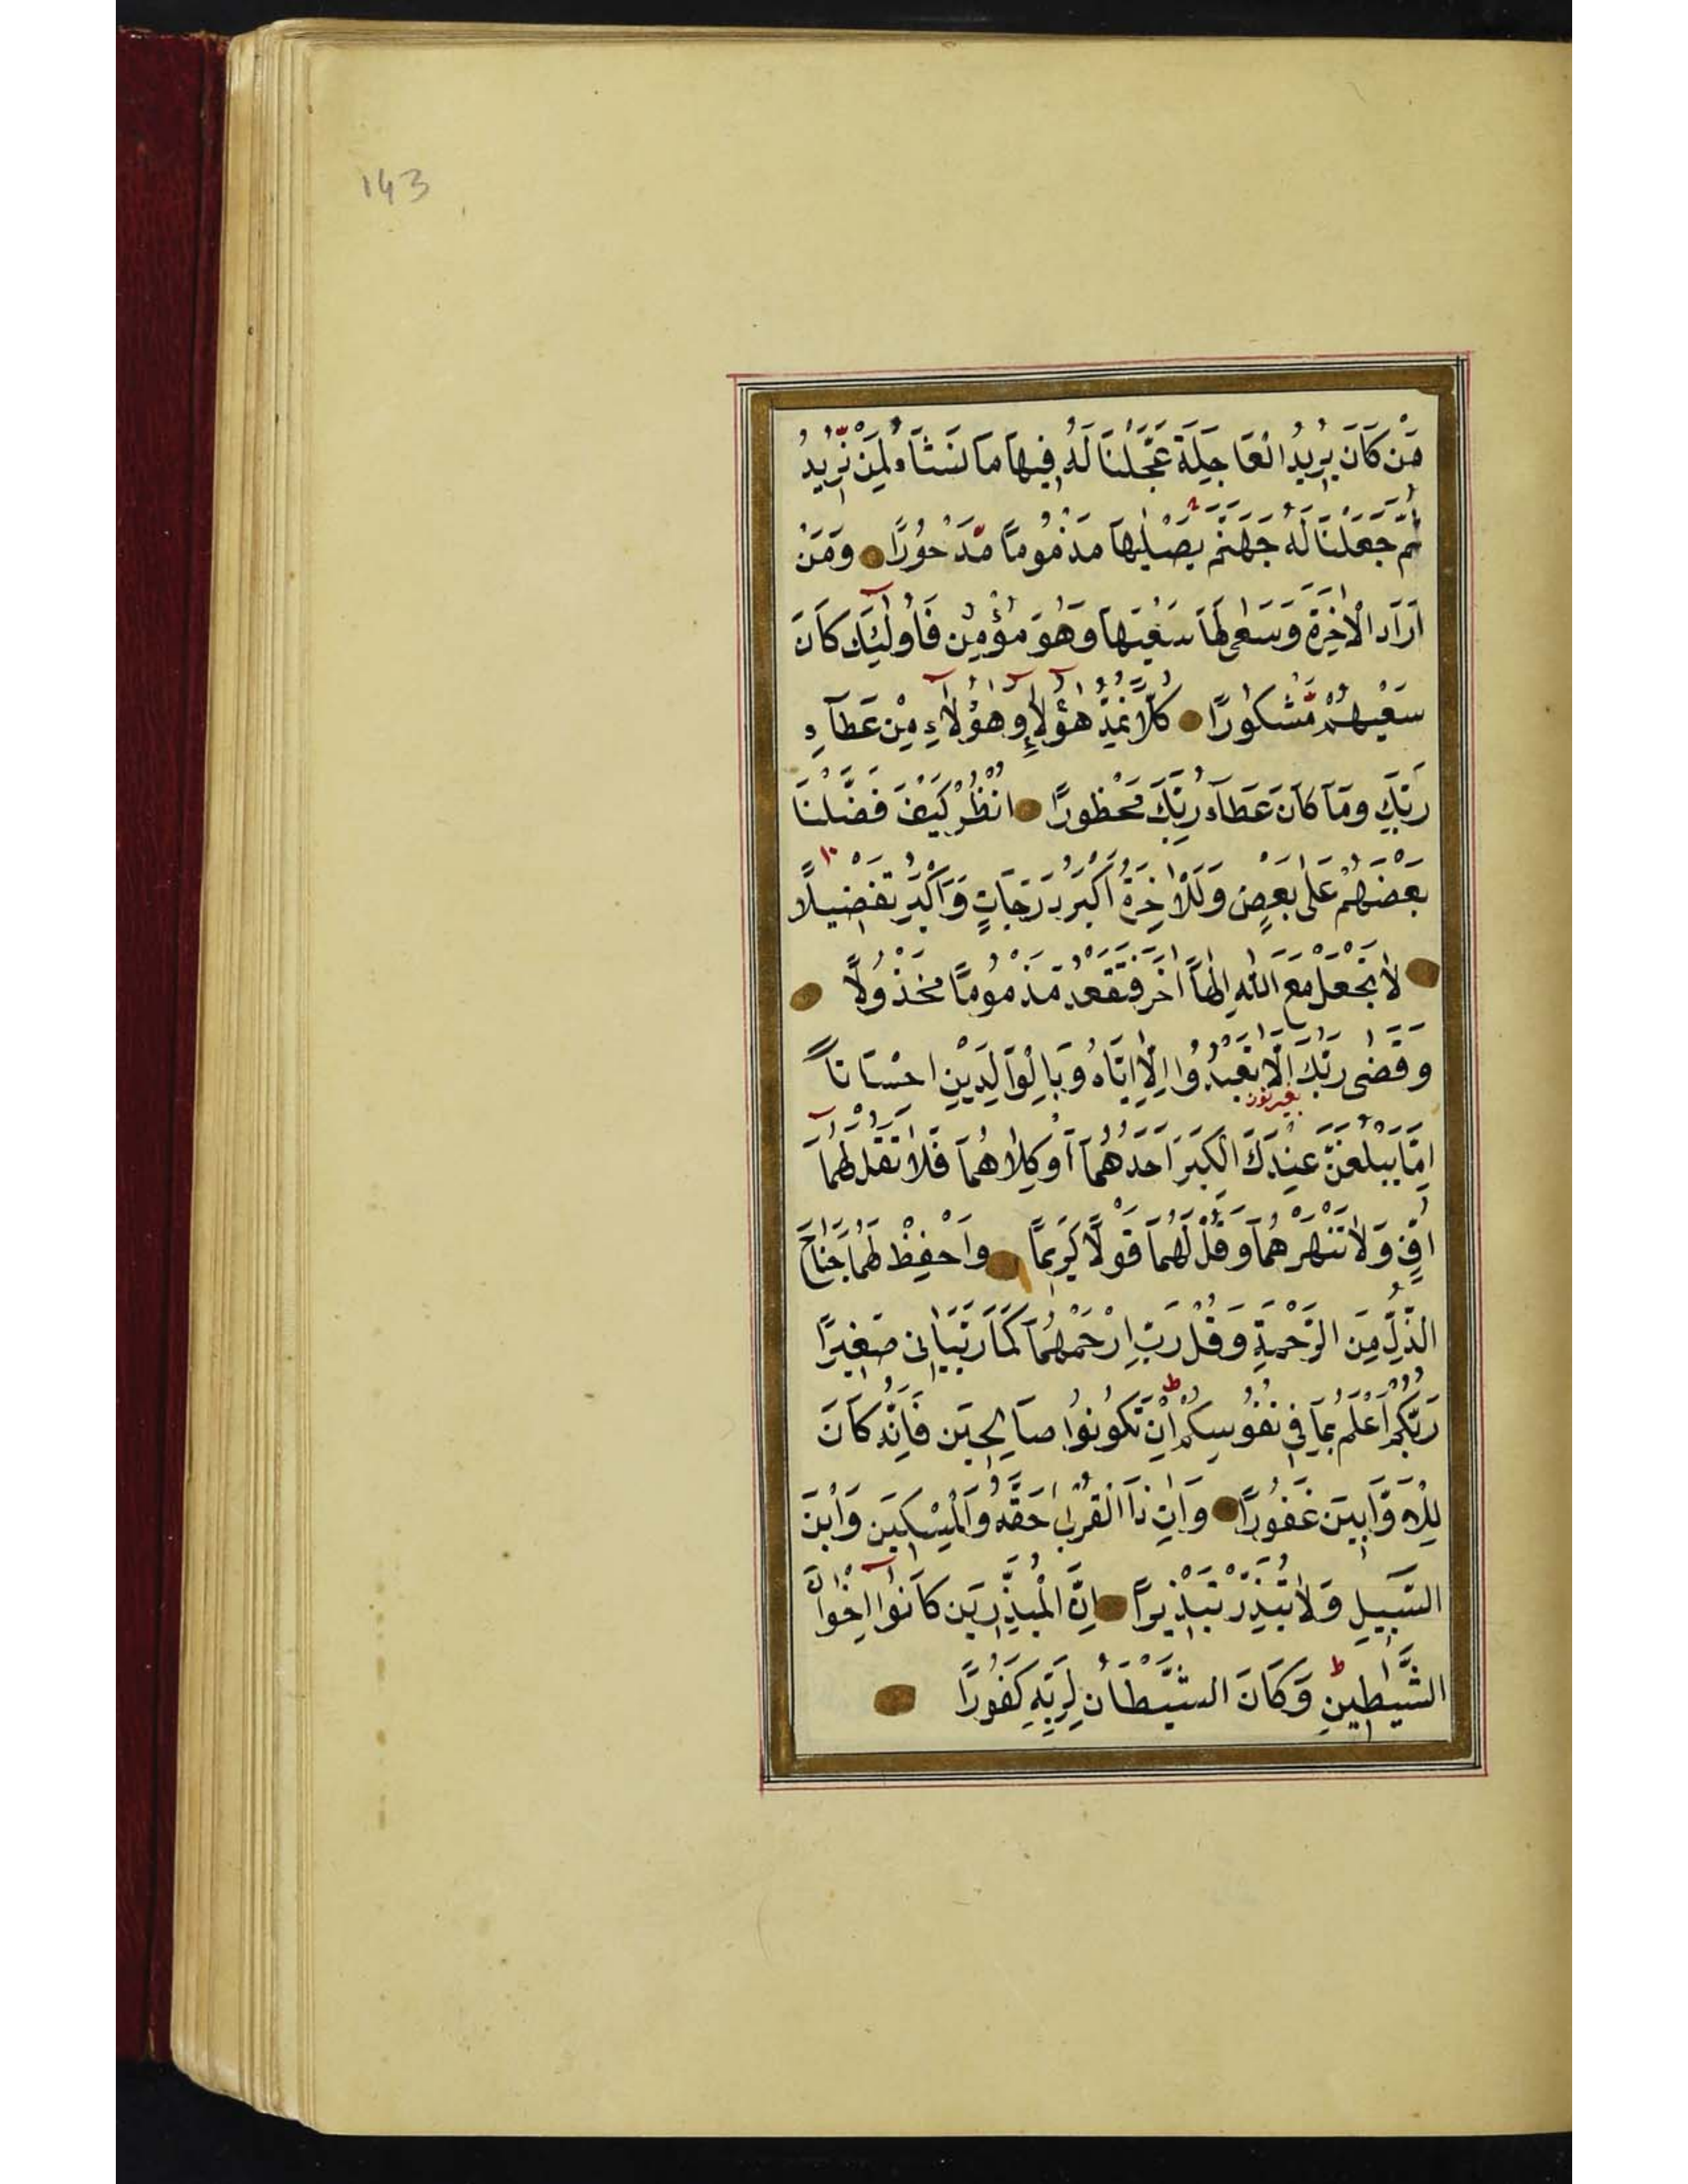 143
مَنْ كَانَ يُرِيدُ الْعَاجِلَةَ عَجَّلْنَا لَهُ فِيهَا مَا نَشَاءُ لِمَنْ نُرِيدُ
ثُمَّ جَعَلْنَا لَهُ جَهَنَّمَ يَصْلٰيهَا مَذْمُومًا مَّدْحُورًا وَمَنْ
اَرَادَ الْاٰخِرَةَ وَسَعٰى لَهَا سَعْيَهَا وَهُوَ مُؤْمِنٌ فَاُولٰئِكَ كَانَ
سَعْيُهُمْ مَّشْكُورًا كُلًّا نُمِدُّ هٰؤُلَاءِ وَهٰؤُلَاءِ مِنْ عَطَآءِ
رَبِّكَ وَمَا كَانَ عَطَآءُ رَبِّكَ مَحْظُورًا انْظُرْ كَيْفَ فَضَّلْنَا
بَعْضَهُمْ عَلٰى بَعْضٍ وَلَلْاٰخِرَةُ اَكْبَرُ دَرَجَاتٍ وَاَكْبَرُ تَفْضِيلًا
لَا تَجْعَلْ مَعَ اللّٰهِ اِلٰهًا اٰخَرَ فَتَقْعُدَ مَذْمُومًا مَخْذُولًا
وَقَضٰى رَبُّكَ اَلَّا تَعْبُدُوا اِلَّا اِيَّاهُ وَبِالْوَالِدَيْنِ اِحْسَانًا
بغير نون
اِمَّا يَبْلُغَنَّ عِنْدَكَ الْكِبَرَ اَحَدُهُمَا اَوْ كِلَاهُمَا فَلَا تَقُلْ لَهُمَا
اُفٍّ وَلَا تَنْهَرْهُمَا وَقُلْ لَهُمَا قَوْلًا كَرِيمًا وَاخْفِظْ لَهُمَا جَنَاحَ
الذُّلِّ مِنَ الرَّحْمَةِ وَقُلْ رَبِّ ارْحَمْهُمَا كَمَا رَبَّيَانِى صَغِيرًا
رَبُّكُمْ اَعْلَمُ بِمَا فِى نُفُوسِكُمْ اِنْ تَكُونُوا صَالِحِينَ فَاِنَّهُ كَانَ
لِلْاَوَّابِينَ غَفُورًا وَاٰتِ ذَا الْقُرْبٰى حَقَّهُ وَالْمِسْكِينَ وَابْنَ
السَّبِيلِ وَلَا تُبَذِّرْ تَبْذِيرًا اِنَّ الْمُبَذِّرِينَ كَانُوا اِخْوَانَ
الشَّيٰطِينِ وَكَانَ الشَّيْطَانُ لِرَبِّهِ كَفُورًا